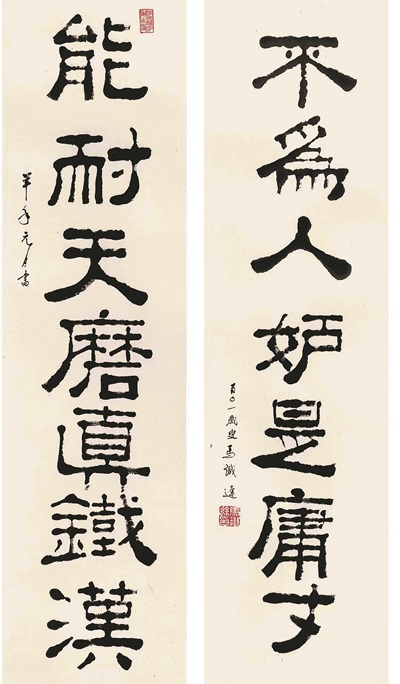 不為人妒是庸才
百〇一歲叟馬識途
能耐天磨真鐵漢
羊年元月書